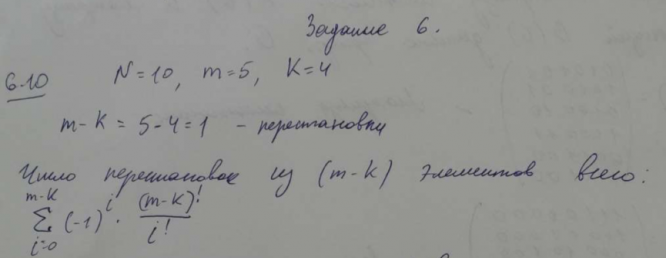 Задание 6.
6.10 N=10, m=5, K=4
m-K = 5-4=1 - перестановки
Число перестановок из (m-K) элементов всего:
m-K
Σ (-1)^i · (m-K)! / i!
i=0